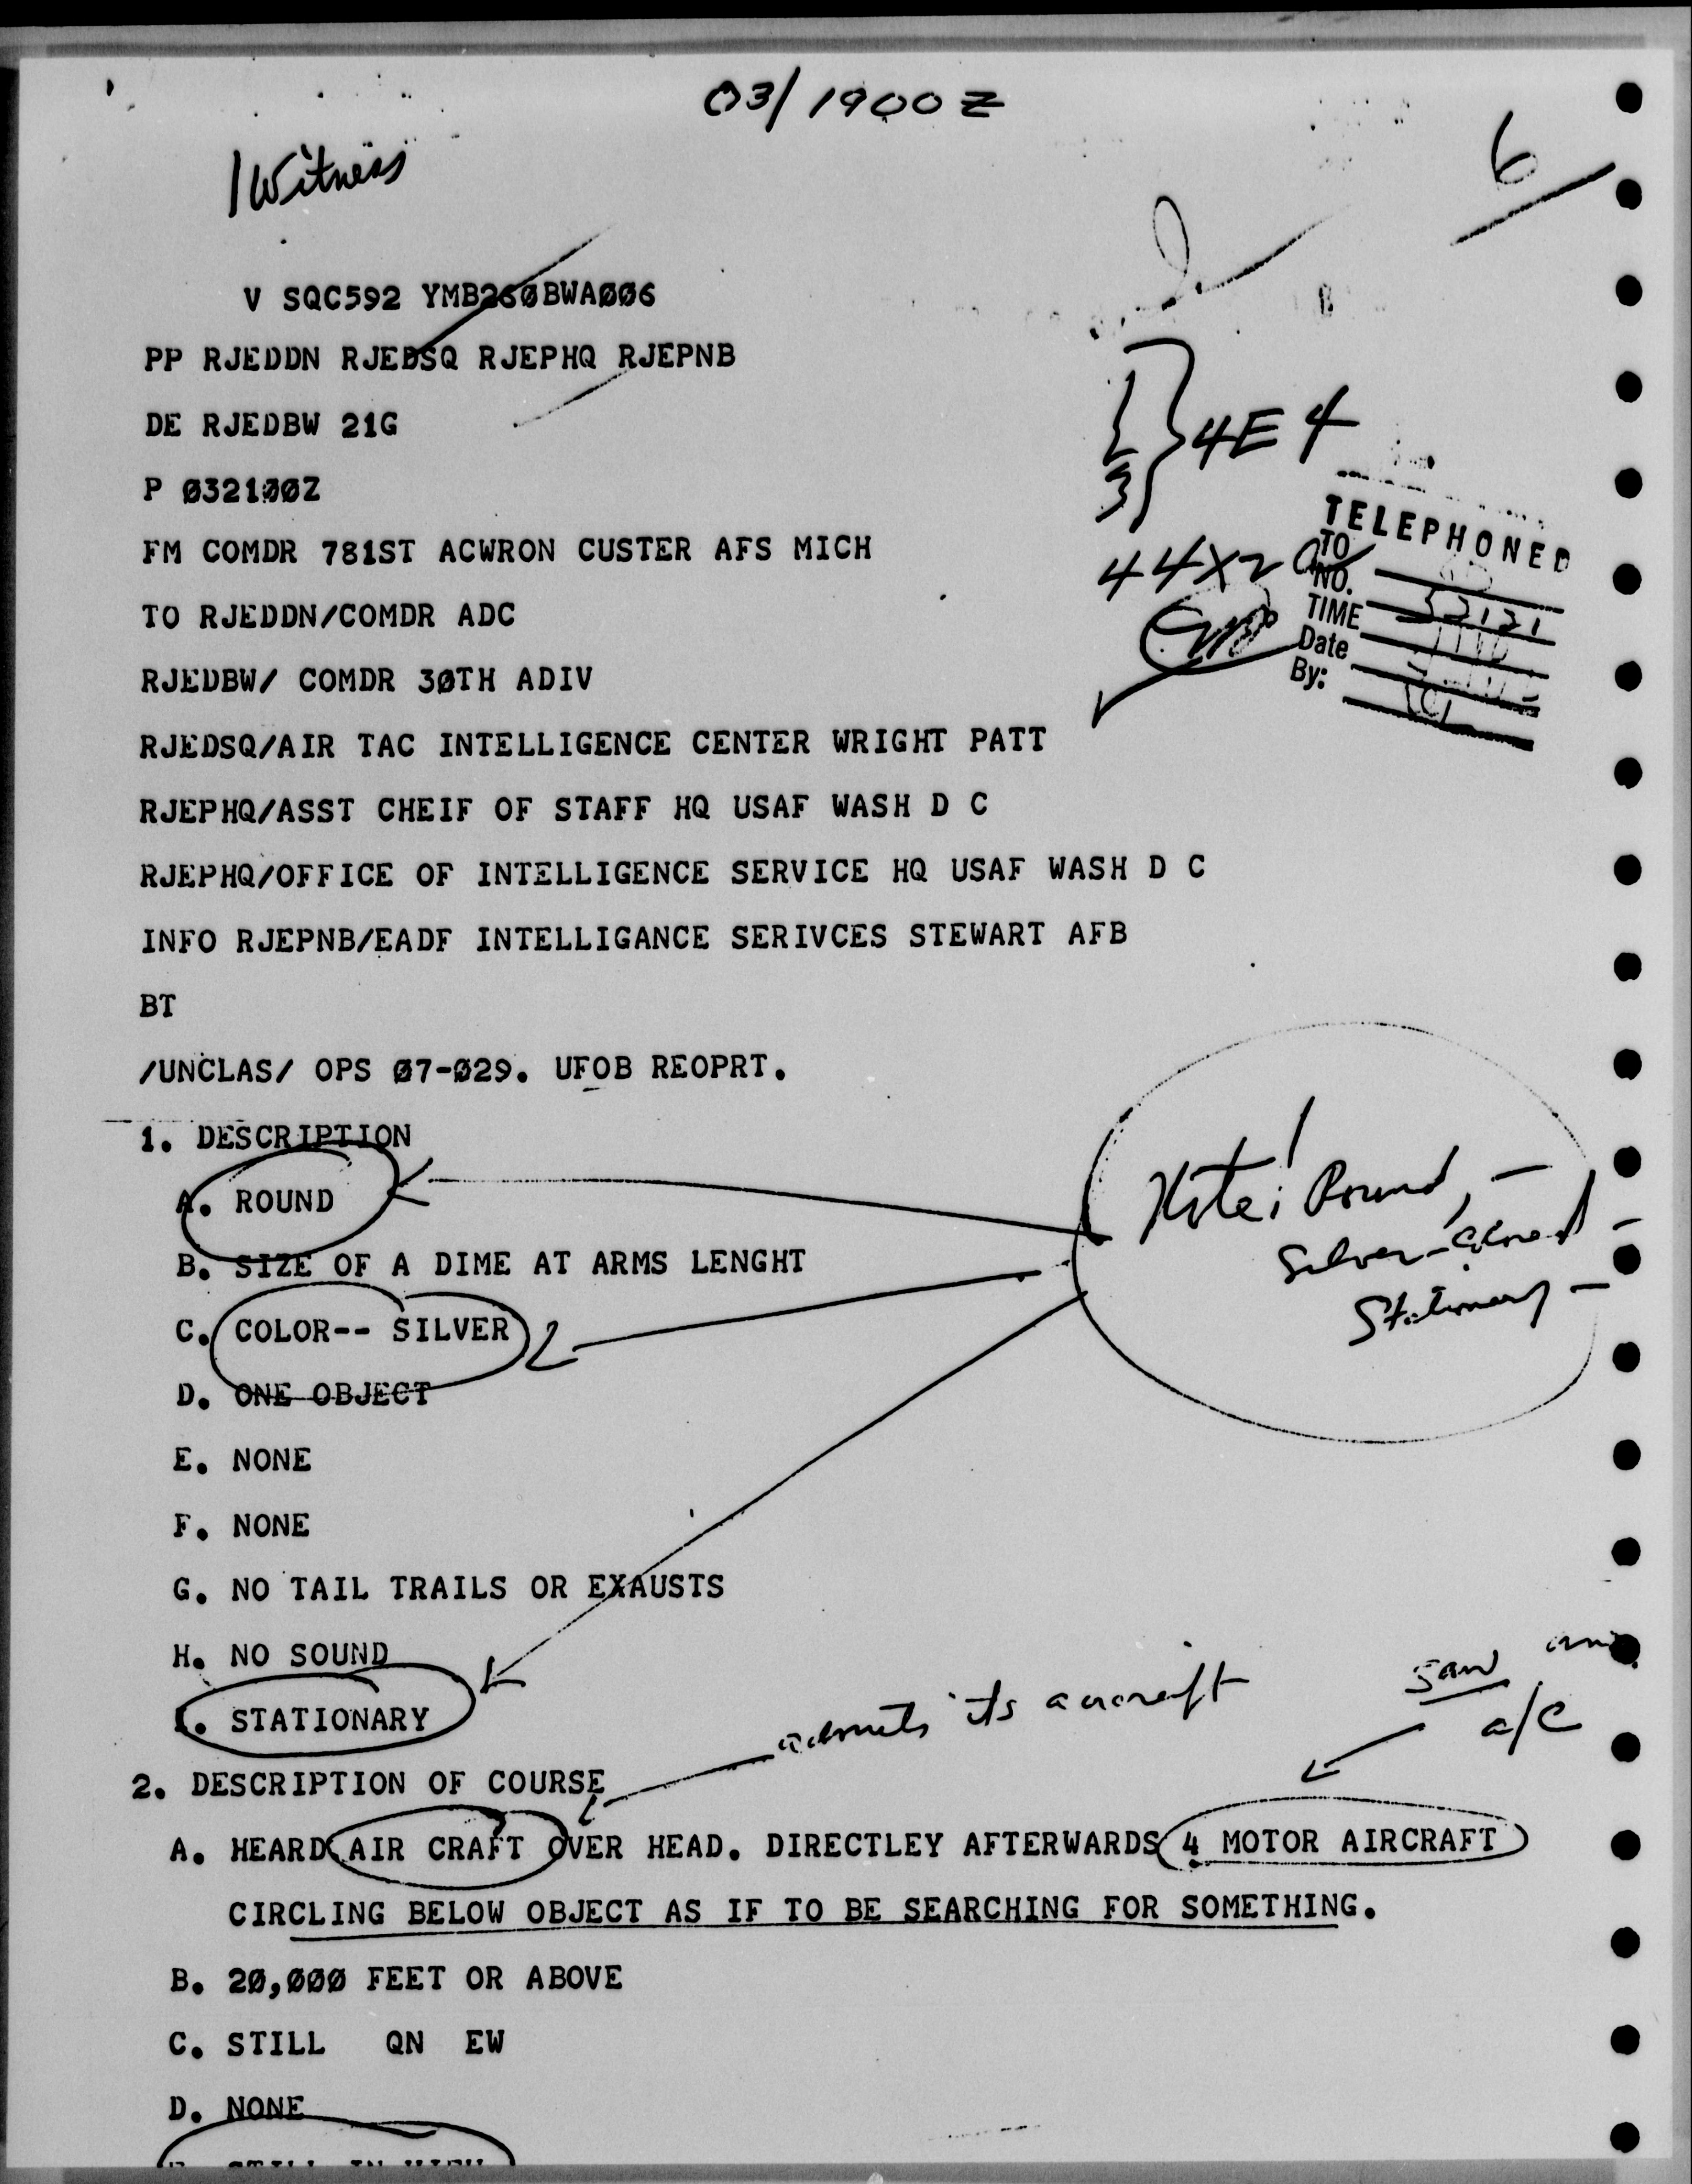 03/1900Z
1 Witness
6
V SQC592 YMB260BWA006
PP RJEDDN RJEDSQ RJEPHQ RJEPNB
DE RJEDBW 21G
P 032100Z
FM COMDR 781ST ACWRON CUSTER AFS MICH
TO RJEDDN/COMDR ADC
RJEDBW/ COMDR 30TH ADIV
RJEDSQ/AIR TAC INTELLIGENCE CENTER WRIGHT PATT
RJEPHQ/ASST CHEIF OF STAFF HQ USAF WASH D C
RJEPHQ/OFFICE OF INTELLIGENCE SERVICE HQ USAF WASH D C
INFO RJEPNB/EADF INTELLIGANCE SERIVCES STEWART AFB
BT
/UNCLAS/ OPS 07-029. UFOB REOPRT.
4E4
44X2
TELEPHONED
TO
NO. 52121
TIME
Date
By:
1. DESCRIPTION
A. ROUND
B. SIZE OF A DIME AT ARMS LENGHT
C. COLOR-- SILVER
D. ONE OBJECT
E. NONE
F. NONE
G. NO TAIL TRAILS OR EXAUSTS
H. NO SOUND
I. STATIONARY
Note! Round, -
Silver-
Stationary -
2. DESCRIPTION OF COURSE
admits its aircraft
saw
a/c
A. HEARD AIR CRAFT OVER HEAD. DIRECTLEY AFTERWARDS 4 MOTOR AIRCRAFT
CIRCLING BELOW OBJECT AS IF TO BE SEARCHING FOR SOMETHING.
B. 20,000 FEET OR ABOVE
C. STILL QN EW
D. NONE